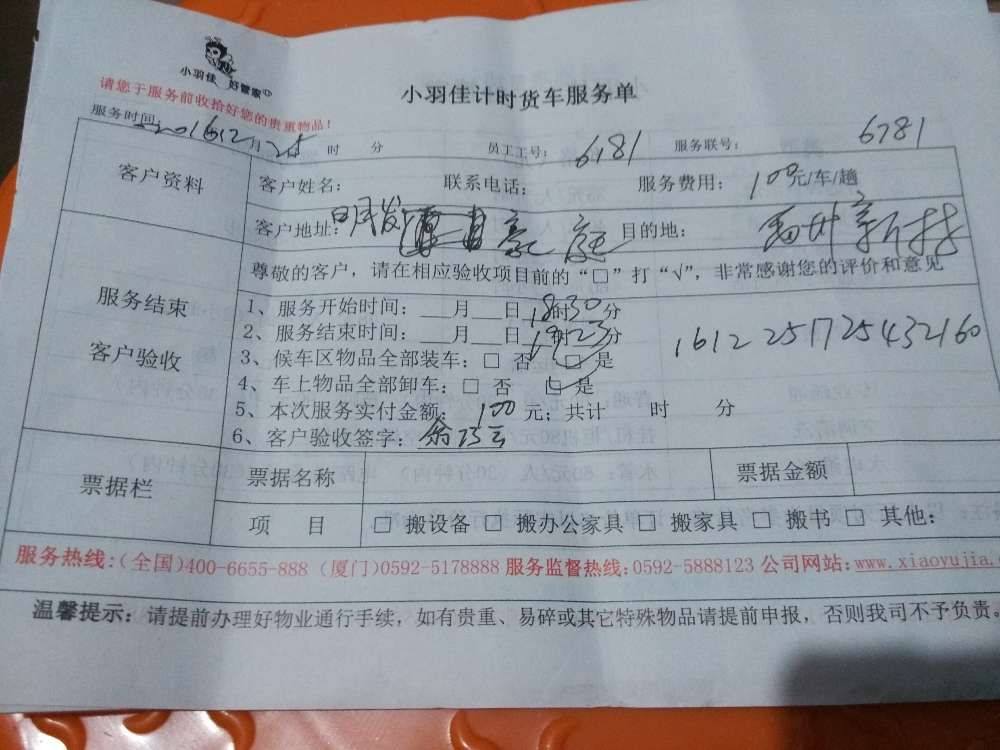 小羽佳 好管家
小羽佳计时货车服务单
请您于服务前收拾好您的贵重物品！
服务时间： 2016 12月 25 时 分 员工工号： 6181 服务联号： 6781
客户资料 客户姓名： 联系电话： 服务费用： 100元/车/趟
客户地址： 明发 豪庭 目的地：
尊敬的客户，请在相应验收项目前的“□”打“√”，非常感谢您的评价和意见
服务结束
客户验收
1、服务开始时间： ___月___日 18时30分
2、服务结束时间： ___月___日 19时23分
3、候车区物品全部装车：□ 否 □ 是
4、车上物品全部卸车：□ 否 □ 是
5、本次服务实付金额： 100 元；共计 时 分
6、客户验收签字：
1612251725432160
票据栏 票据名称 票据金额
项 目 □ 搬设备 □ 搬办公家具 □ 搬家具 □ 搬书 □ 其他：
服务热线：(全国)400-6655-888 (厦门)0592-5178888 服务监督热线：0592-5888123 公司网站：www.xiaoyujia.
温馨提示：请提前办理好物业通行手续，如有贵重、易碎或其它特殊物品请提前申报，否则我司不予负责。